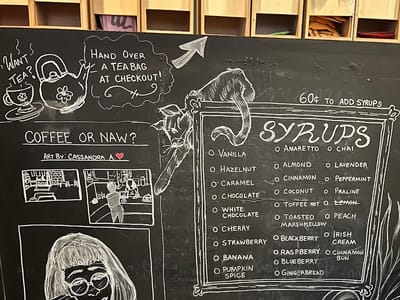 WANT
TEA?
HAND OVER
A TEA BAG
AT CHECKOUT!
COFFEE OR NAW?
ART BY: CASSANDRA A.
60¢ TO ADD SYRUPS
SYRUPS
VANILLA
HAZELNUT
CARAMEL
CHOCOLATE
WHITE
CHOCOLATE
CHERRY
STRAWBERRY
BANANA
PUMPKIN
SPICE
AMARETTO
ALMOND
CINNAMON
COCONUT
TOFFEE NUT
TOASTED
MARSHMALLOW
BLACKBERRY
RASPBERRY
BLUEBERRY
GINGERBREAD
CHAI
LAVENDER
PEPPERMINT
PRALINE
LEMON
PEACH
IRISH
CREAM
CINNAMON
BUN